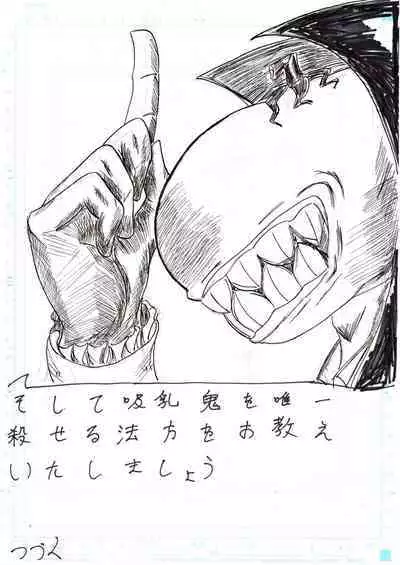 そして吸乳鬼を唯一
殺せる法方をお教え
いたしましょう
つづく